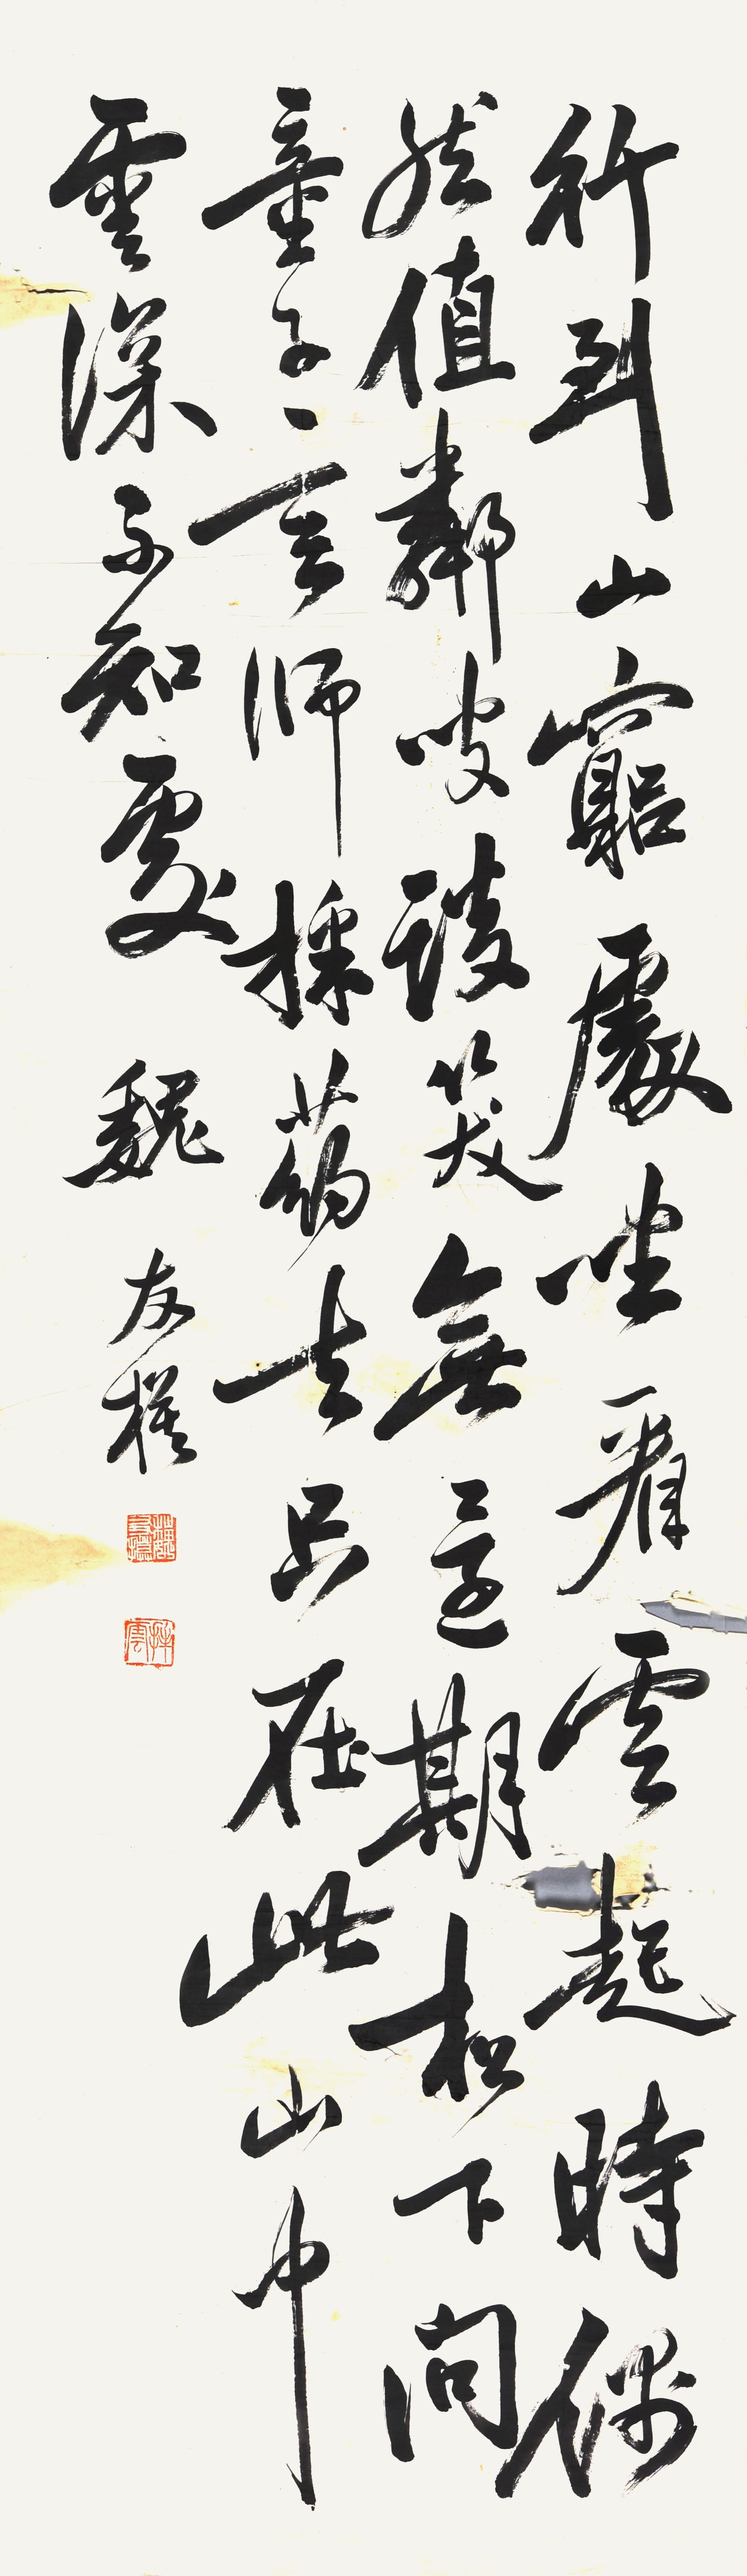 行到山窮處坐看雲起時偶
然值鄰叟談笑無還期松下問
童子言師採葯去只在此山中
雲深不知處 魏友